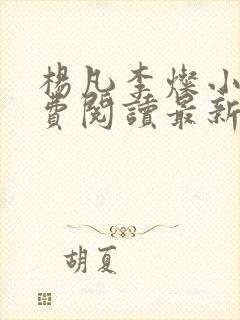 楊凡李燦小
費閱讀最新
胡夏